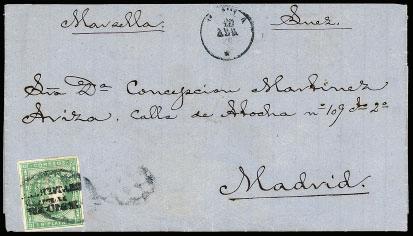 Marsella. Suez.
12
ABR
Sra Da Concepcion Martinez
Ariza. calle de Atocha nº 109 2º
Madrid.
CORREOS